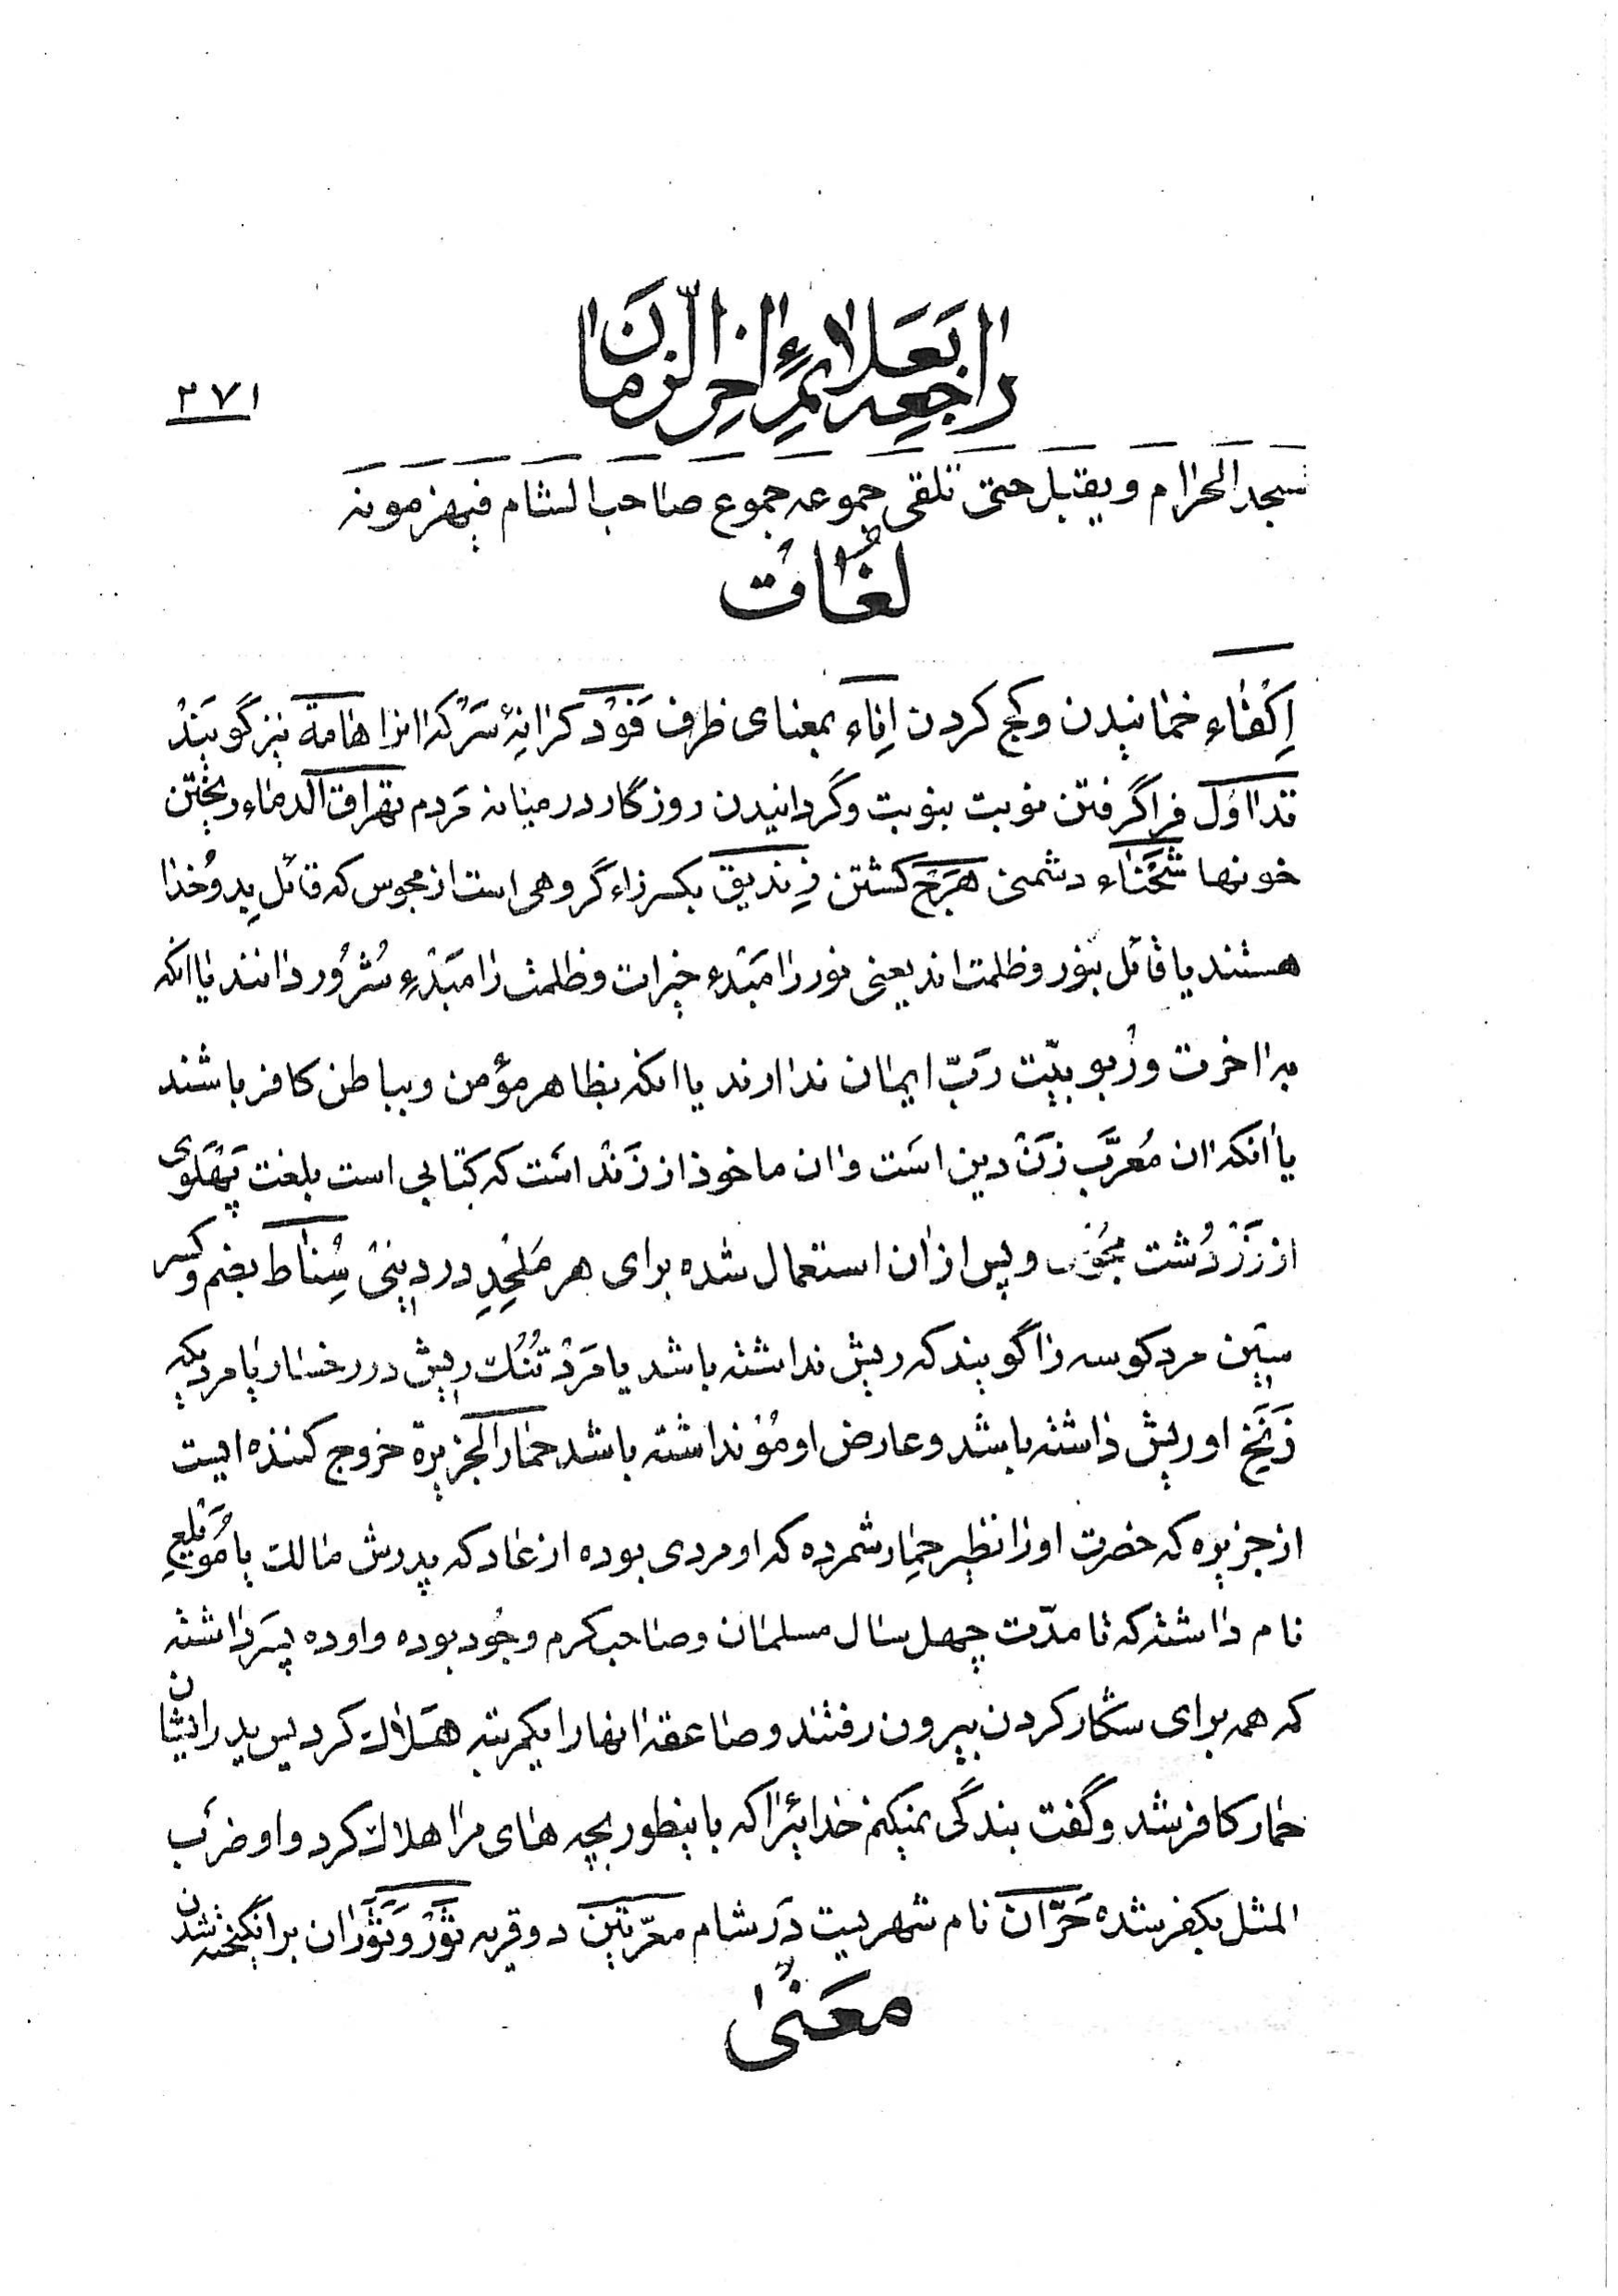 راجعه بعلائمِ اخِرالزمان
۲۷۱
سجد الحرام و یقبل حتی تلقی جموعه جموع صاحب الشام فیهزمونه
لُغات
اِکْفاء خمانیدن و کج کردن اِناء بمعنای ظرف فَوْد کرانهٔ سَر که انرا هامة نیز گویَنْد
تداوُل فرا گرفتن نوبت بنوبت و گردانیدن روزگار در میان مَردم تهراق الدماء ریختن
خونها شَحْناء دشمنی هَرَج کشتن زِندیق بکسر زاء گروهی است از مجوس که قائل بِدوُخدا
هستند یا قائل بنور و ظلمت اند یعنی نور را مَبْدء خیرات و ظلمت را مَبْدءِ شُرُور دانند یا انکه
به اخرت و رُبوبیّت رَبّ ایمان ندارند یا انکه بظاهر مؤمن و بباطن کافر باشند
یا انکه ان مُعرَّب زَن دین است و ان ماخوذ از زَنْد است که کتابی است بلغت پَهْلَوی
از زَرْدُشت مجوس و پس از ان استعمال شده برای هر مُلْحِدِ در دینی سِناط بضم و کسر
سین مرد کوسه را گویند که ریش نداشته باشد یا مَرْد تُنُک ریش در رخسار یا مردیکه
زَنَخ او ریش داشته باشد و عارض او مُوْ نداشته باشد حمار الجزیرة خروج کننده ایست
از جزیره که حضرت او را نظیر حِمار شمرده که او مردی بوده از عاد که پدرش مالک یا مُوَیْلِعِ
نام داشته که تا مدّت چهل سال مسلمان و صاحب کرم و جُود بوده و او ده پِسَر داشته
که همه برای شکار کردن بیرون رفتند و صاعقه انها را یکمرتبه هَلاک کرد پس پدر ایشان
حمار کافر شد و گفت بندگی نمیکنم خدائیرا که باینطور بچه های مرا هلاک کرد و او ضَرب
المثل بکفر شده حَرّان نام شهریست دَر شام معرّتین دو قریه ثَوْر وَ ثَوَران برانگیخته شدن
معنی